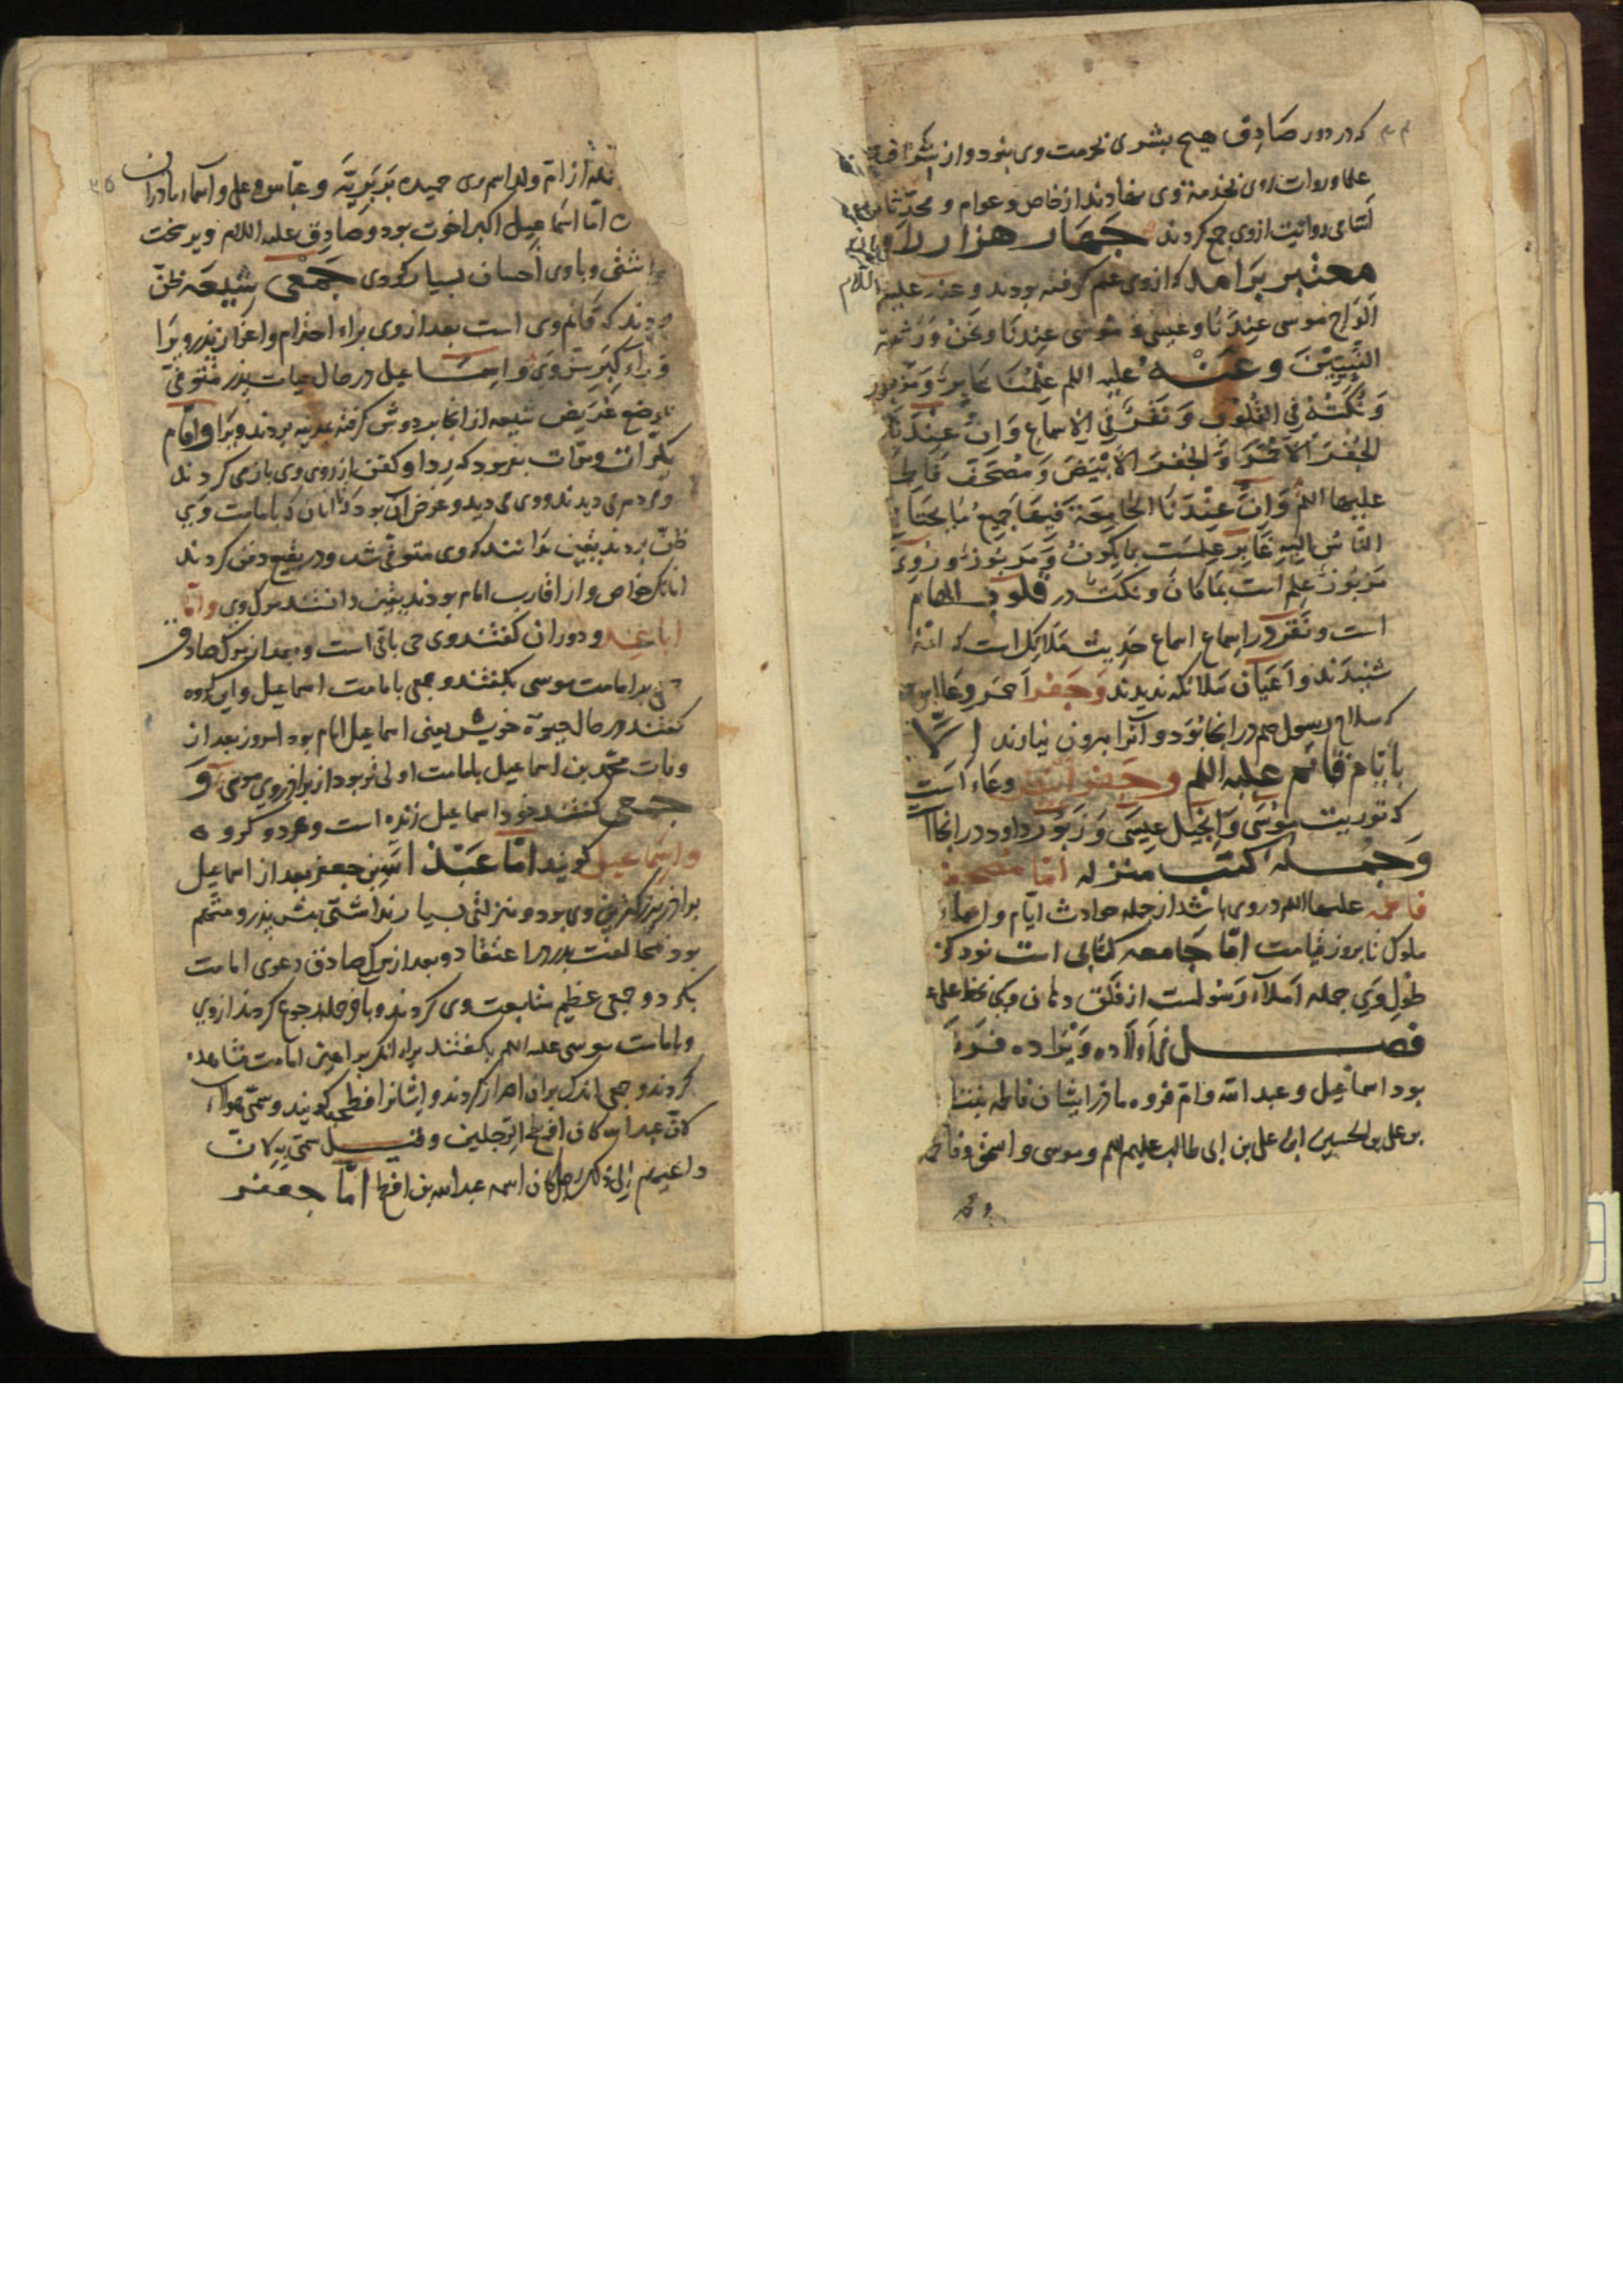 که در دور صادق هیچ بشری بحرمت وی نبود و از
علما و روات روی بخدمت وی نهادند از خاص و عوام و محدثان
روایت از وی جمع کردند چهار هزار
معتبر برآمد که از وی علم گرفته بودند و عنه علیه السلام
الواح موسی عندنا و عصی موسی عندنا و نحن ورثة
النبیین و عنه علیه السلم علمنا غابر و مزبور
و نکت فی القلوب و نقر فی الاسماع و ان عندنا
الجفر الاحمر و الجفر الابیض و مصحف فاطمه
علیها السلم و ان عندنا الجامعة فیها جمیع ما یحتاج
الناس الیه غابر علمست بما یکون و مزبور
مزبور علم است بما کان و نکت در قلوب الهام
است و نقر در اسماع اسماع حدیث ملائکه است که ائمه
شنیدند و اعیان ملائکه ندیدند و جفر احمر وعاء
که سلاح رسول صم در انجا بود و آنرا بیرون نیاوند الا
بایام قائم علیه السلم و جفر ابیض وعاء است
که توریت موسی و انجیل عیسی و زبور داود در انجا
و جمله کتب منزله اما مصحف
فاطمه علیها السلم در وی باشد از جمله حوادث ایام و اسماء
ملوک تا بروز قیامت اما جامعه کتابی است
طول وی جمله املاء رسولست از فلق دهان وی بخط علی
فصل فی اولاده ویرا ده
بود اسماعیل و عبد الله و ام فروه مادر ایشان فاطمه بنت
بن علی بن الحسین ابن علی بن ابی طالب علیهم السلم و موسی و اسحق و فاطمه
و محمد
از ام ولد اسم وی حمیده بربریه و عباس و علی و اسماء مادران
اما اسماعیل اکبر اخوت بود و صادق علیه السلام ویرا سخت
و با وی احسان بسیار کردی جمعی شیعه ظن
بردند که قائم وی است بعد از وی برای احترام و اعزاز پدر ویرا
و برای کبر سن وی و اسماعیل در حال حیات پدر متوفی
بموضع عریض شیعه از انجا بر دوش گرفته بمدینه بردند ویرا و امام
بکرات و مرات بفرمود که ردا و کفن از روی وی باز می کردند
و مردم می دیدند و وی می دید و غرض آن بود که تا انان که بامامت وی
ظن بردند بیقین بدانند که وی متوفی شد و در بقیع دفن کردند
انانک خواص و از اقارب امام بودند بیقین دانستند مرگ وی و اما
اباعد و دوران گفتند وی حی باقی است و بعد از مرگ صادق
بامامت موسی بگفتند و جمعی بامامت اسماعیل و این گروه
گفتند در حال حیوة خویش یعنی اسماعیل امام بود امروز بعد از
وفات محمد بن اسماعیل بامامت اولی تر بود از برادر وی موسی و
جمعی گفتند خود اسماعیل زنده است و هر دو گروه
را اسماعیلی گویند اما عبد الله بن جعفر بعد از اسماعیل
برادر وی بود و منزلتی بسیار نداشتی پیش پدر و متهم
بود بمخالفت پدر در اعتقاد و بعد از مرگ صادق دعوی امامت
بکرد و جمعی عظیم متابعت وی کردند و بآخر جمله رجوع کردند از وی
و بامامت موسی علیه السلم بگفتند برای انکه براهین امامت مشاهده
کردند و جمعی اندک بران اصرار کردند و ایشانرا فطحی گویند و سمی هولاء
کان عبد الله کان افطح الرجلین و قیل سمی به لان
داعیهم الی ذلک رجل کان اسمه عبد الله بن افطح اما جعفر